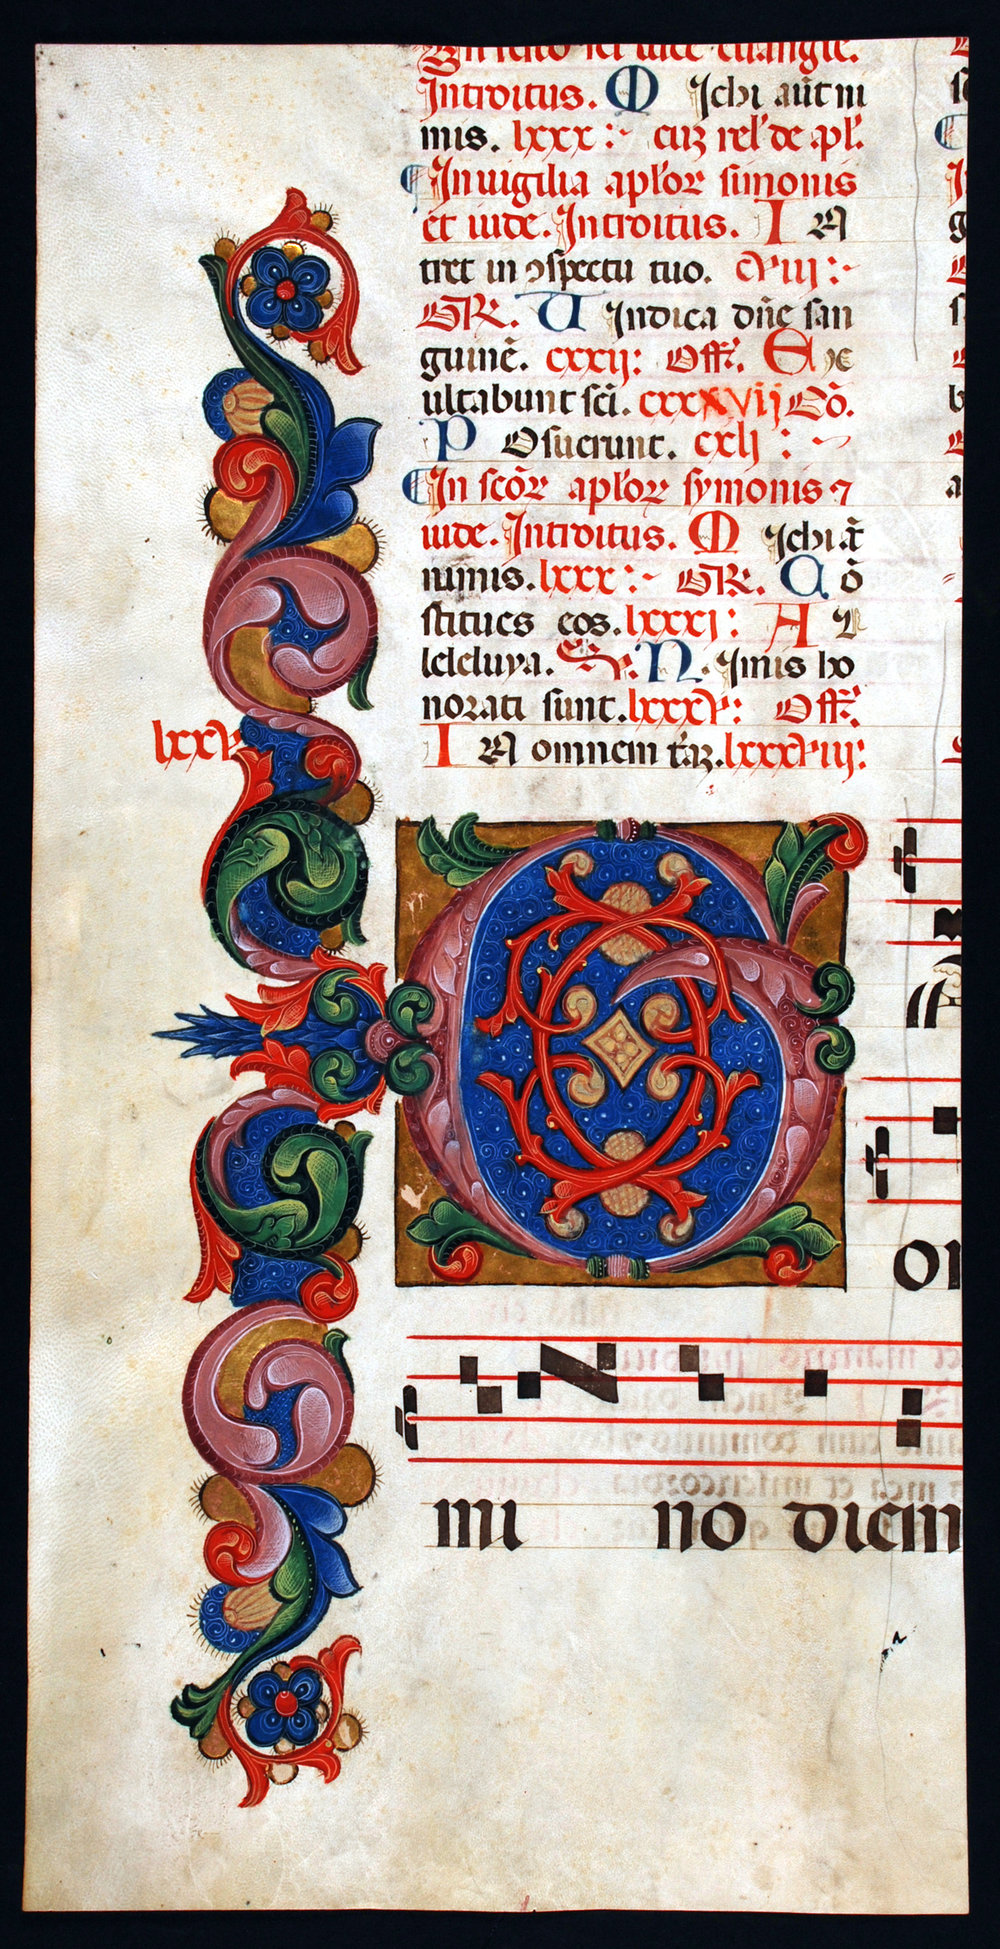 In festo sci luce euangle.
Introitus. M Ichi aut ni
mis. lxxx : cuz rel' de apl'.
In uigilia aplor simonis
et iude. Introitus. I N
tret in ɔspectu tuo. cviij :
GR. U Indica dñe san
guinē. cxxij: Off. E xc
ultabunt sci. cxxxvij Cō.
P Osuerunt. cxlj :
In scōr aplor symonis ⁊
iude. Introitus. M Ichi āt
nimis. lxxx : GR. C ō
stitues eos. lxxxj : A L
leleluya. N Imis ho
norati sunt. lxxxv : Off.
lxxv
I N omnem t'az. lxxxviij :
G
mi no diem